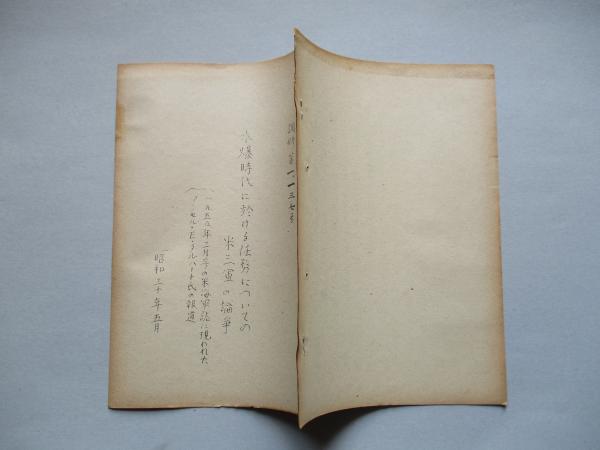 調時 第一、一三七号
水爆時代に於ける任務についての
米三軍の論争
(一九五五年二月号の米海軍誌に現われた
セル・E・フルハート氏の報道)
昭和三十年五月